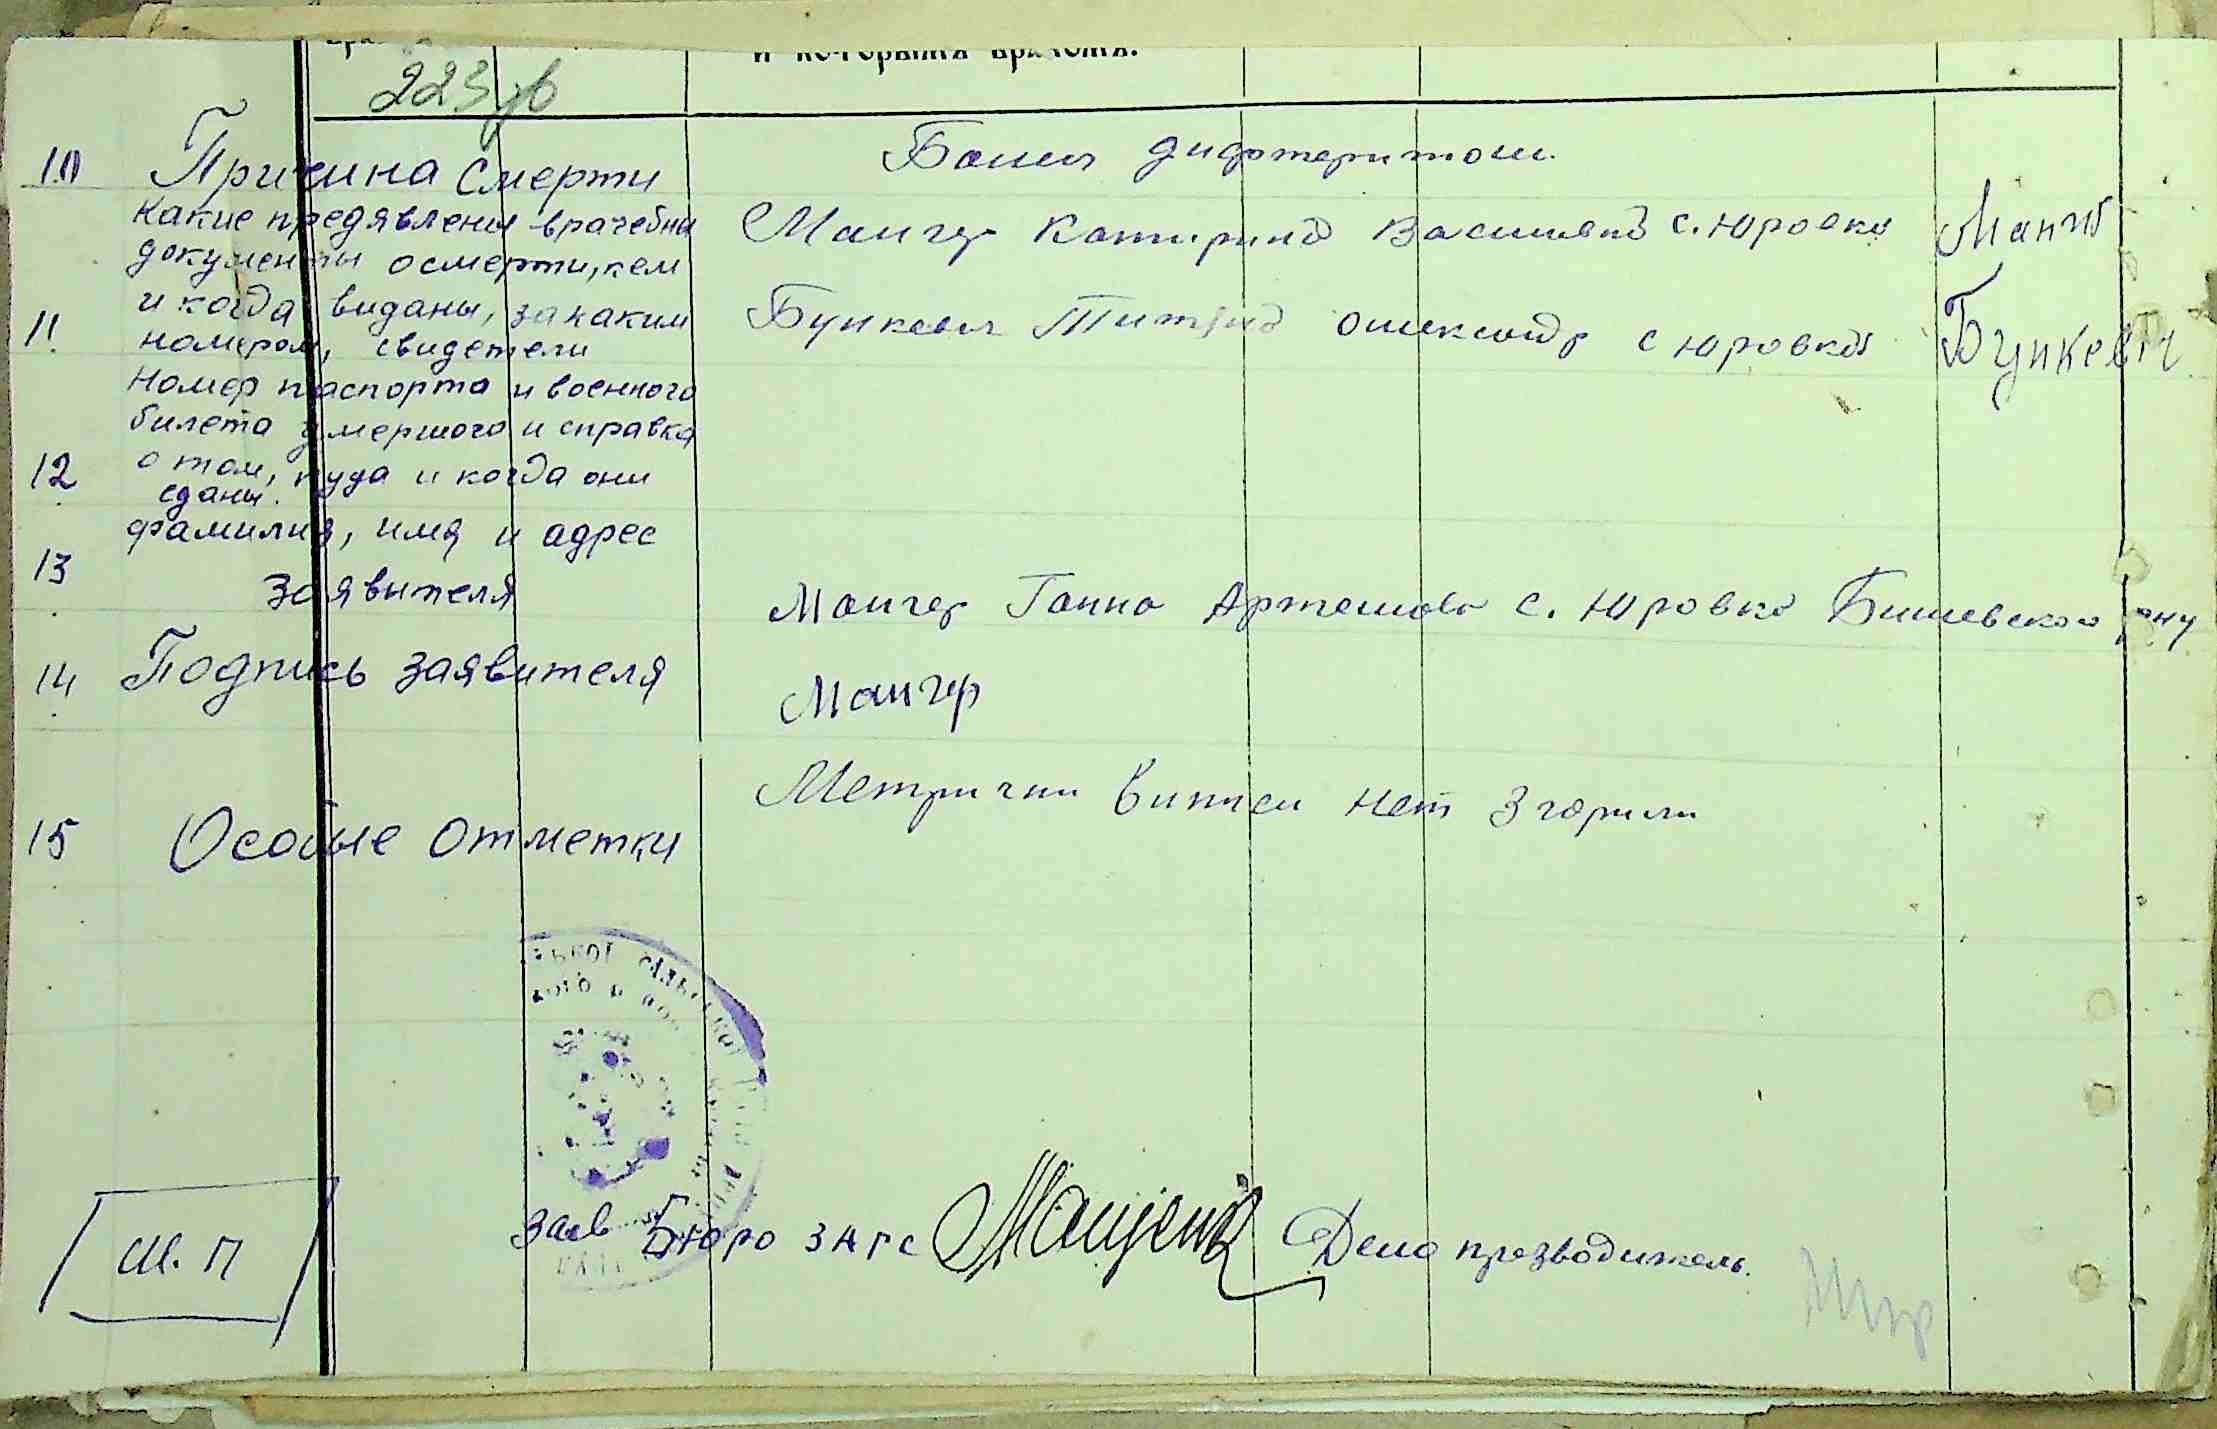 и которымъ врачомъ.
223 зв
10 Причина смерти
Болел дифтеритом.
Какие предявлены врачебны
документы о смерти, кем
11. и когда виданы, за каким
номером, свидетели
Мангер Катирина Василевна с. Юровка
Бункевич Олександр с Юровка Бункевич
Номер паспорта и военного
билета умершого и справка
12 о том, куда и когда они
сданы.
13 фамилия, имя и адрес
заявителя
Мангер Ганна Артемовна с. Юровка Бишевского рну
14 Подпись заявителя
Мангер
15 Особые отметки
Метрични виписи нет згорили
Ш. П
Заев Бюро загс Дело прозводитель.